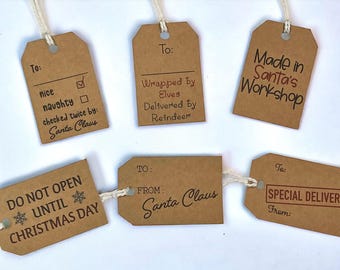 To:
nice
naughty
checked twice by:
Santa Claus
To:
Wrapped by
Elves
Delivered by
Reindeer
Made in
Santa's
Workshop
DO NOT OPEN
UNTIL
CHRISTMAS DAY
TO:
FROM:
Santa Claus
To:
SPECIAL DELIVER
From: